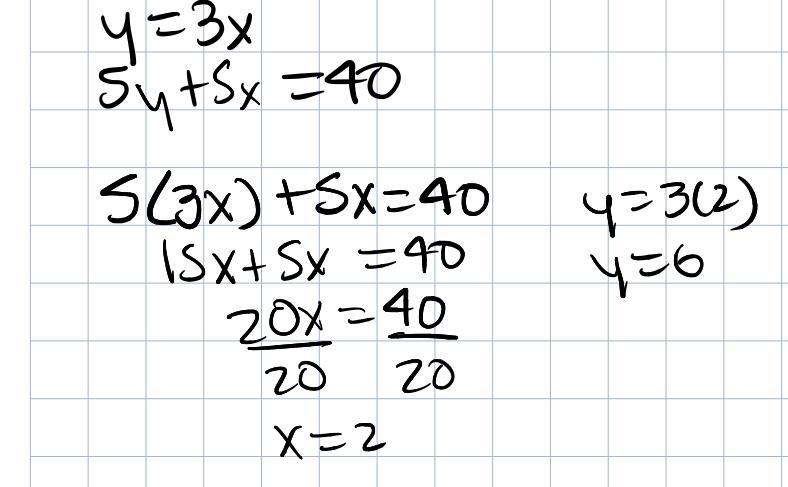 y=3x
5y+5x=40
5(3x)+5x=40
15x+5x=40
20x=40
20 20
x=2
y=3(2)
y=6